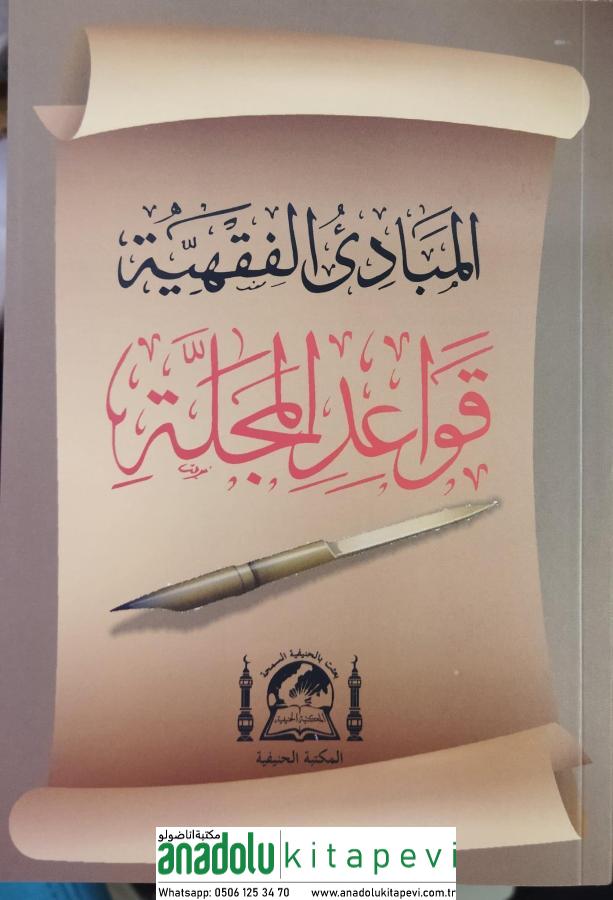 المَبَادِئُ الفِقْهِيَّة
قَوَاعِدِ المَجَلَّةِ
بعثت بالحنيفية السمحة
المكتبة الحنيفية
المكتبة الحنيفية
مكتبة اناضولو
anadolu kitapevi
Whatsapp: 0506 125 34 70 www.anadolukitapevi.com.tr